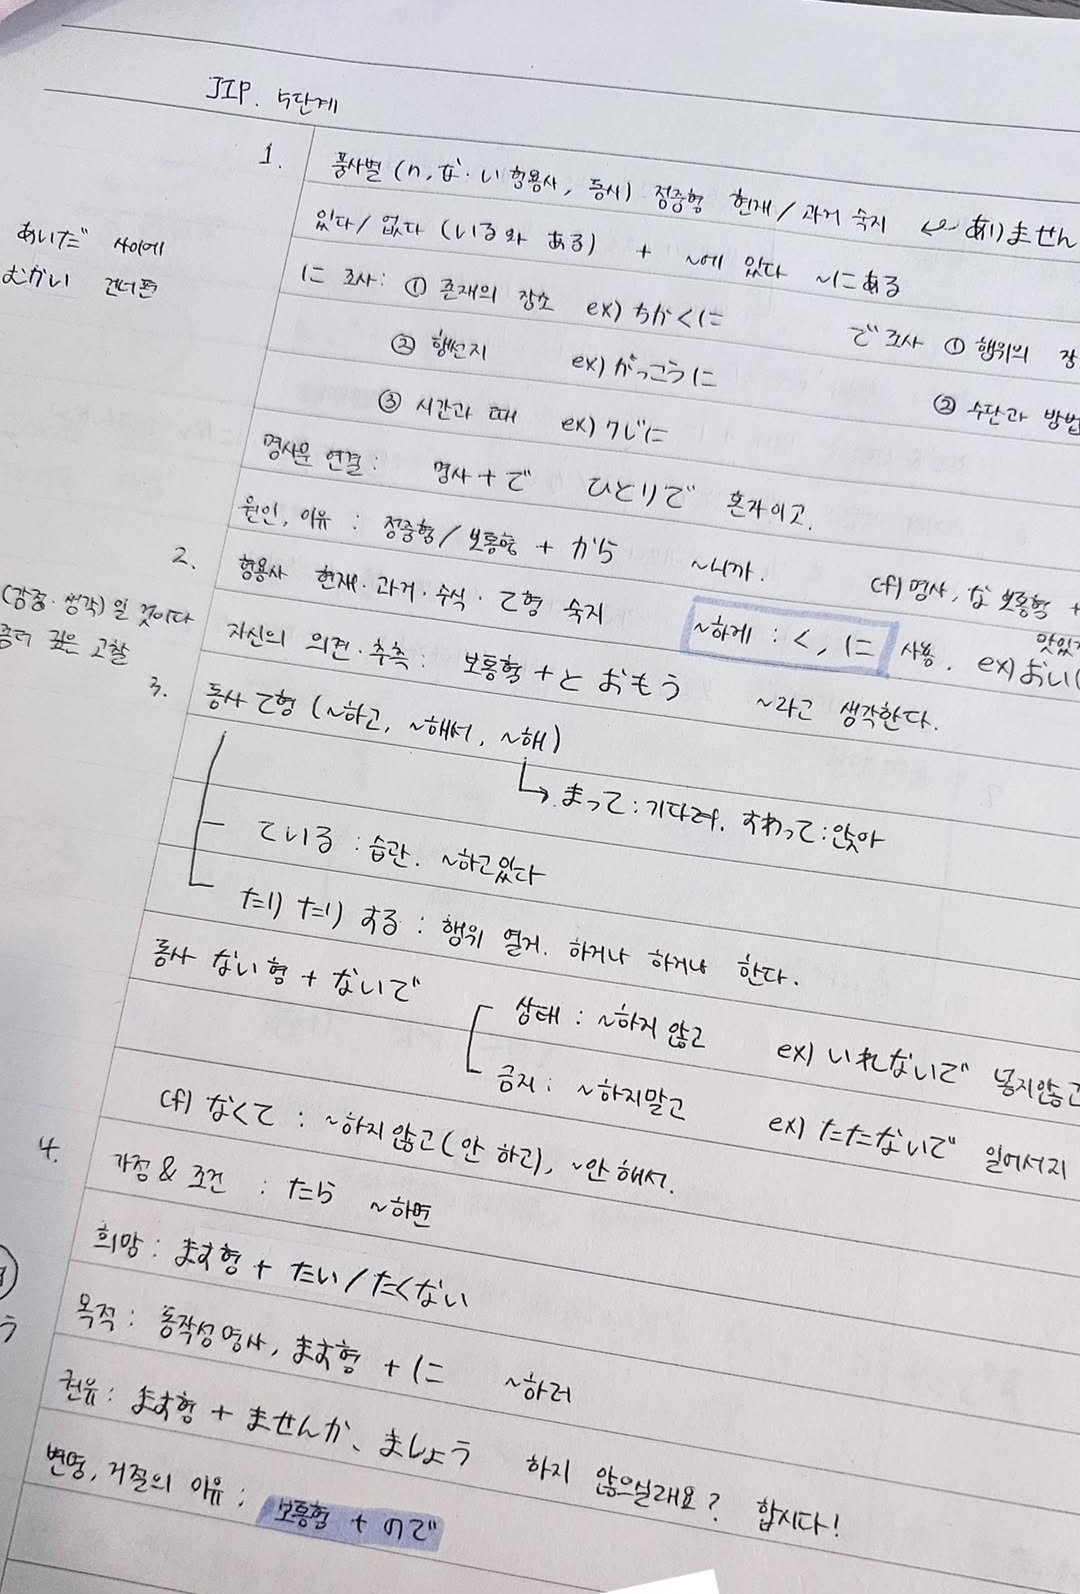 JIP. 5단계
1. 품사별 (n, な·い 형용사, 동사) 정중형 현재/과거 숙지 ← ありません
있다/없다 (いる와 ある) + ~에 있다 ~にある
あいだ 사이에
むかい 건너편
に 조사: ① 존재의 장소 ex) ちかくに で 조사 ① 행위의 장
② 행선지 ex) がっこうに ② 수단과 방법
③ 시간과 때 ex) 7じに
명사문 연결: 명사+で ひとりで 혼자이고.
원인, 이유: 정중형/보통형 + から ~니까. cf) 명사, な 보통형 +
2. 형용사 현재·과거·수식·て형 숙지 ~하게: く, に 사용. ex) おい
맛있
(감정·생각)일 것이다
깊은 고찰
자신의 의견·추측: 보통형+と おもう ~라고 생각한다.
3. 동사 て형 (~하고, ~해서, ~해)
→ まって: 기다려. すわって: 앉아
ている: 습관. ~하고있다
たり たり する: 행위 열거. 하거나 하거나 한다.
동사 ない형 + ないで
상태: ~하지 않고 ex) いれないで 넣지않고
금지: ~하지말고 ex) たたないで 일어서지
cf) なくて: ~하지 않고(안 하고), ~안 해서.
4. 가정 & 조건: たら ~하면
희망: ます형 + たい/たくない
목적: 동작성명사, ます형 + に ~하러
권유: ます형 + ませんか、ましょう 하지 않으실래요? 합시다!
변명, 거절의 이유: 보통형 + ので
う